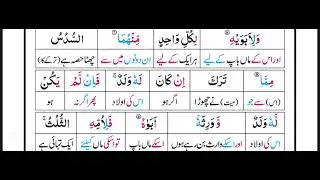 وَلِاَبَوَيْهِ لِكُلِّ وَاحِدٍ مِّنْهُمَا السُّدُسُ
اور اس کے ماں باپ کے لیے ہر ایک کے لیے ان دونوں میں سے چھٹا حصہ ہے (ترکے کا)
مِمَّا تَرَكَ اِنْ كَانَ لَهٗ وَلَدٌ ۚ فَاِنْ لَّمْ يَكُنْ
(اس) سے جو (میت نے) چھوڑا اگر ہو اس کی اولاد پھر اگر نہ ہو
لَّهٗ وَلَدٌ وَّ وَرِثَهٗۤ اَبَوٰهُ فَلِاُمِّهِ الثُّلُثُ ۚ
اس کی اولاد اور اسکے وارث بن رہے ہوں اسکے ماں باپ تو اسکی ماں کیلئے ایک تہائی ہے